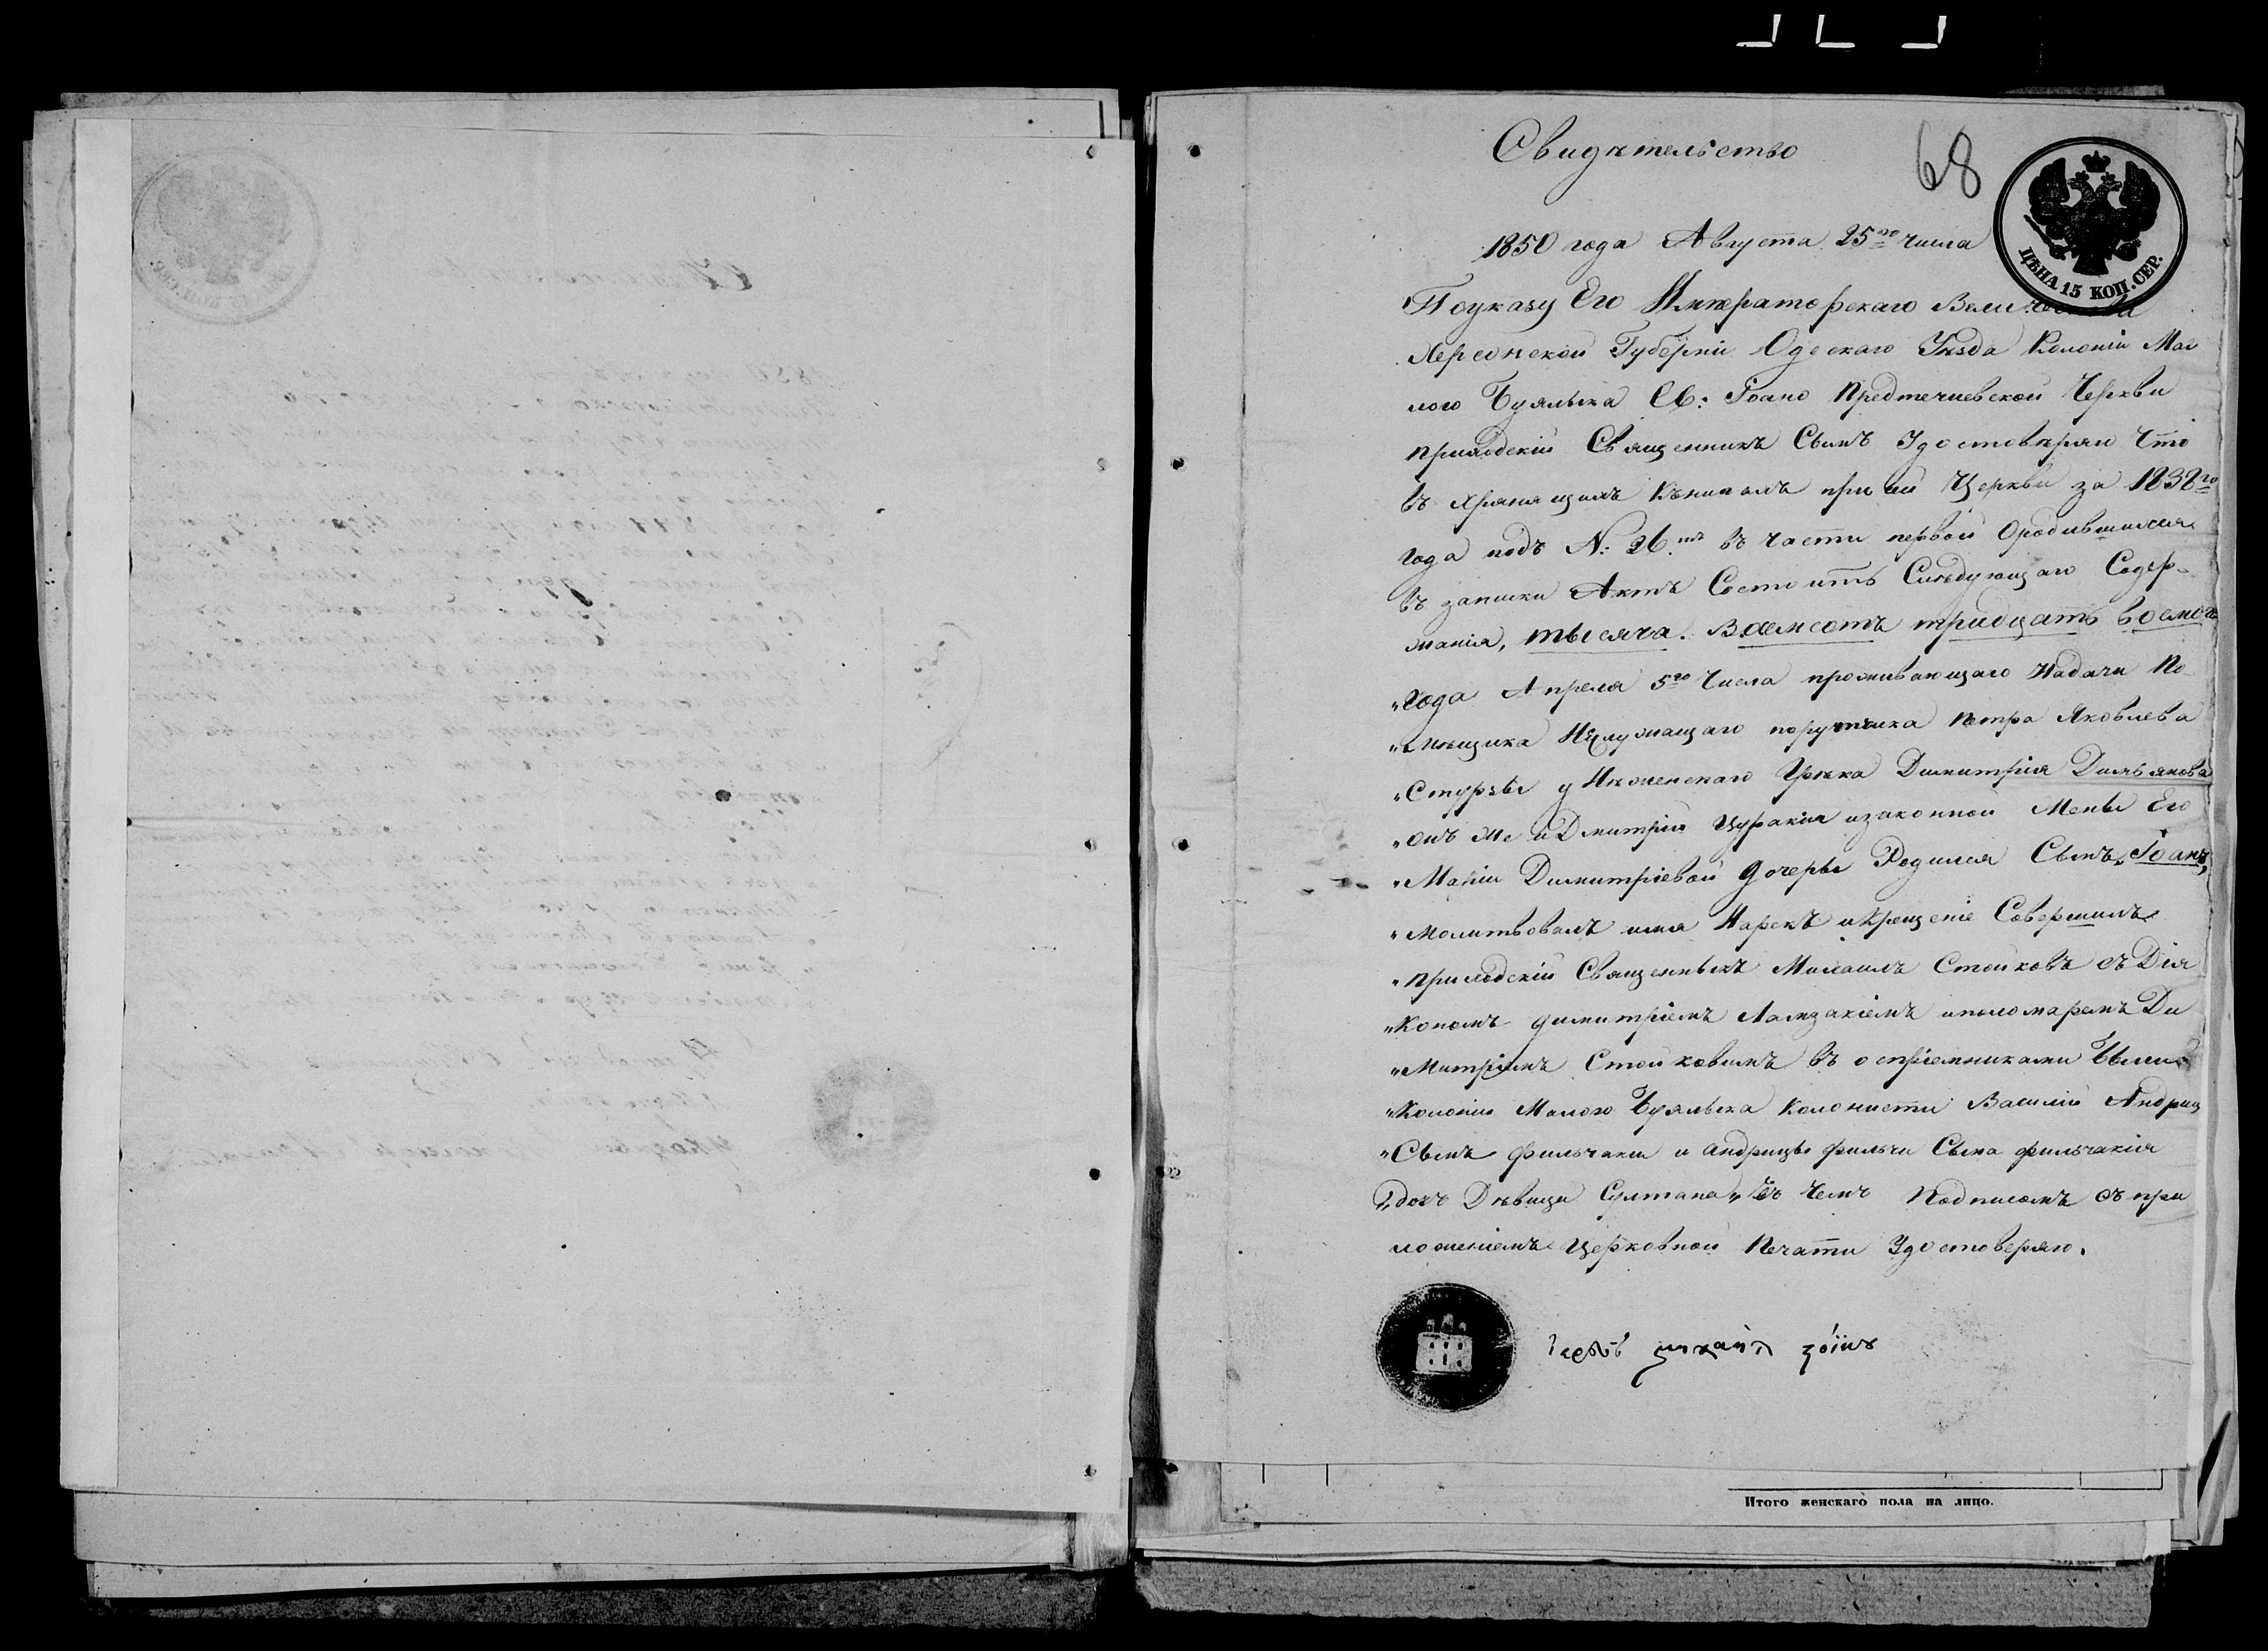 Свидѣтельство
68
1850 года Августа 25го числа
ЦѢНА 15 КОП. СЕР.
Поуказу Его Императорскаго Вели
Херсонской Губерніи Одескаго Уѣзда Колоніи Ма
лого Буялыка Св: Іоано Предтечиевской Церкви
приходскій Священникъ Симъ Удостовѣряю Что
въ Хранящихъ Кънигахъ при ей Церкви за 1838го
года подъ N: 26.мъ въ части первой Ородившихся
въ записки Актъ Состоитъ Слѣдующаго Содер-
жанія, тысяча. Восемсотъ тридцать восмого
„Года Апреля 5го Числа проживающаго Надачи По-
„мѣщика порутчика Петра Яковлева
„Стурзы у Нѣженскаго Грѣка Димитрія
„онъ же и Дмитрій Цуракія изаконной Жены Его
„Маріи Димитріевой дочеры Родился Сынъ „Іоанъ„
„Молитвовалъ имя Нарекъ икрещеніе Совершилъ
„приходскій Священныкъ Михаилъ Стойковъ съ Дія
„Кономъ димитріемъ Ламзакіемъ иполомаремъ Ди
„Митріемъ Стойковимъ въ оспріемниками Были
„Колоніи Малого Буялыка Колонисти Василій Андриц
„Сынъ Фильчаки и андрицы фильчи Сына фильчакія
„дочъ Дѣвица Султана„ Въ Чемъ Подписомъ съ при
ложеніемъ Церковной Печати Удостоверяю.
Итого женскаго пола на лицо.